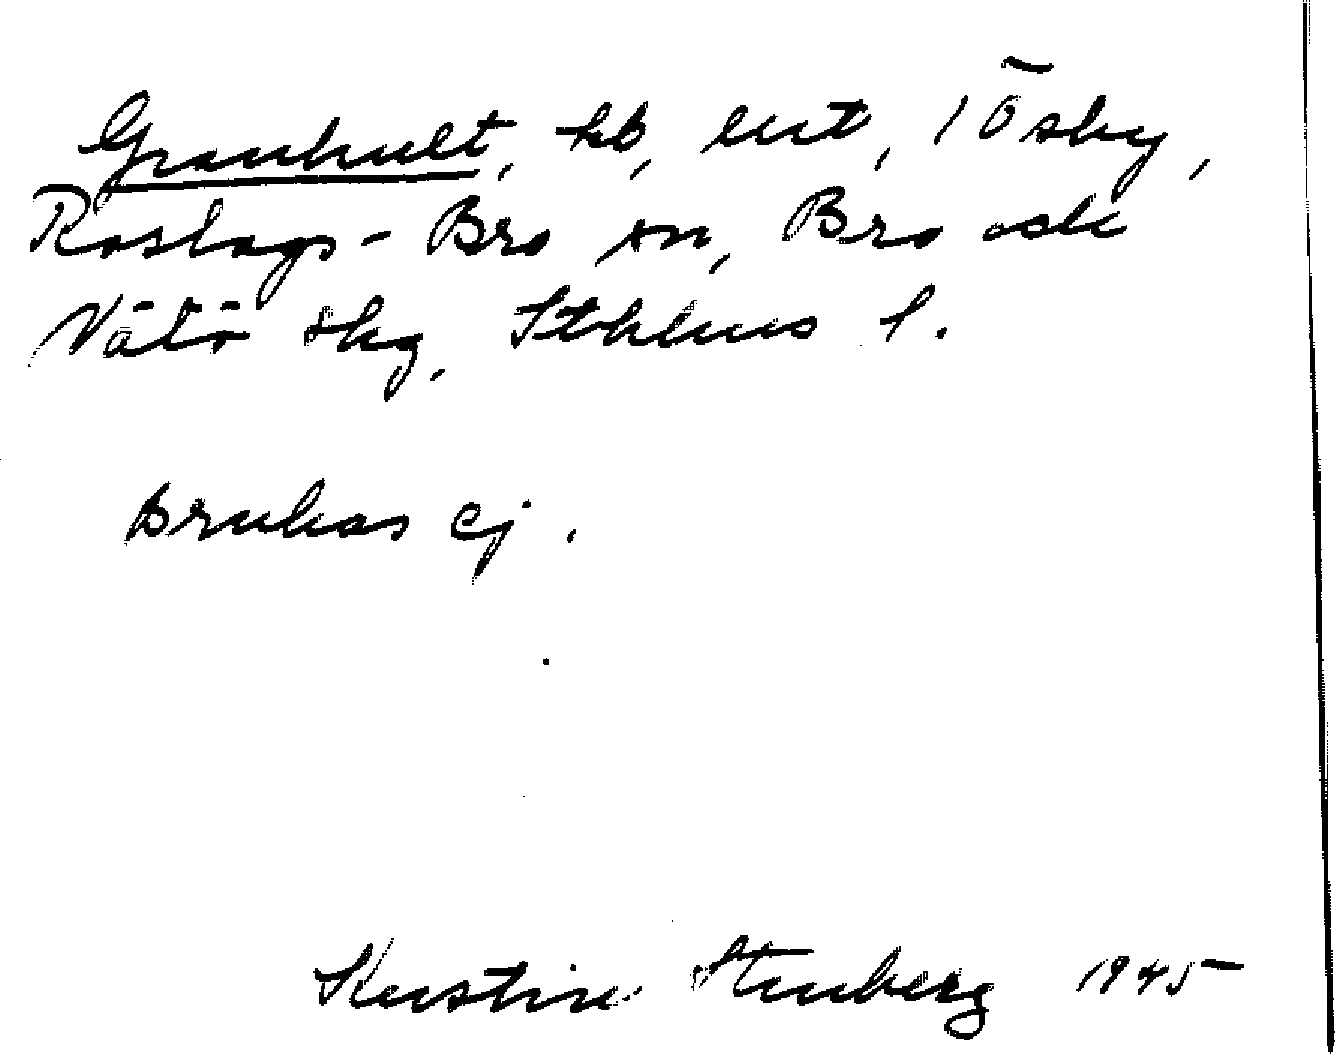 Granhult, hb, ert, 1 Ösby,
Roslags-Bro sn, Bro och
Vätö skg, Sthlms l.
Brukas ej.
Kerstin Stenberg 1945